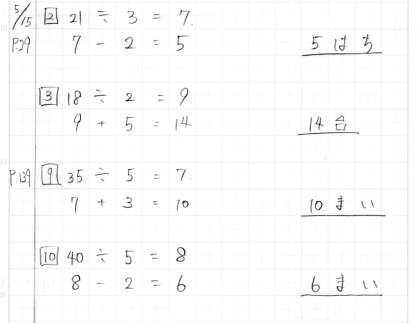 5/15 2 21 ÷ 3 = 7
P.29 7 - 2 = 5 5 はち
3 18 ÷ 2 = 9
9 + 5 = 14 14 台
P.139 9 35 ÷ 5 = 7
7 + 3 = 10 10 まい
10 40 ÷ 5 = 8
8 - 2 = 6 6 まい